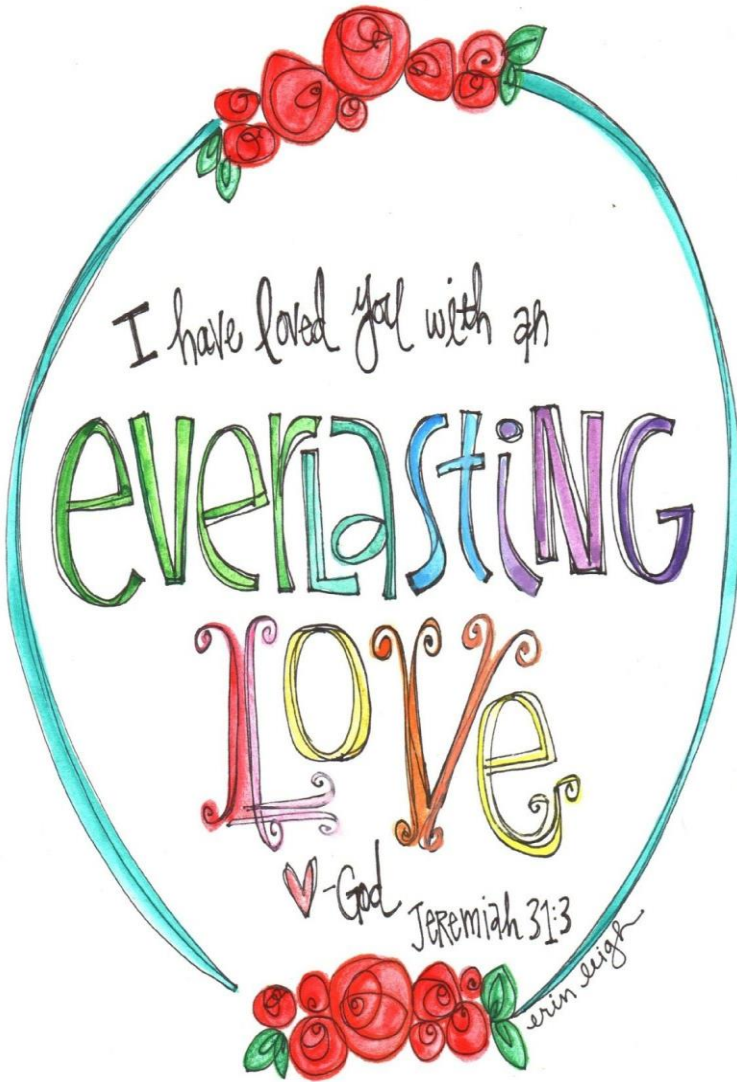 I have loved you with an
everLasTiNG
LoVe
-God
Jeremiah 31:3
erin leigh